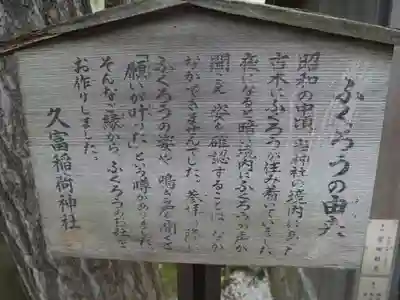 ふくろうの由来
昭和の中頃、当神社の境内にあった
古木にふくろうが住み着いていました。
夜になると暗い境内にふくろうの声が
聞こえ、姿を確認することはなか
なかできませんでした。参拝の際に
ふくろうの姿や鳴き声を聞くと
「願いが叶った」という噂がありました。
そんなご縁から、ふくろうのお社を
お作りしました。
久富稲荷神社